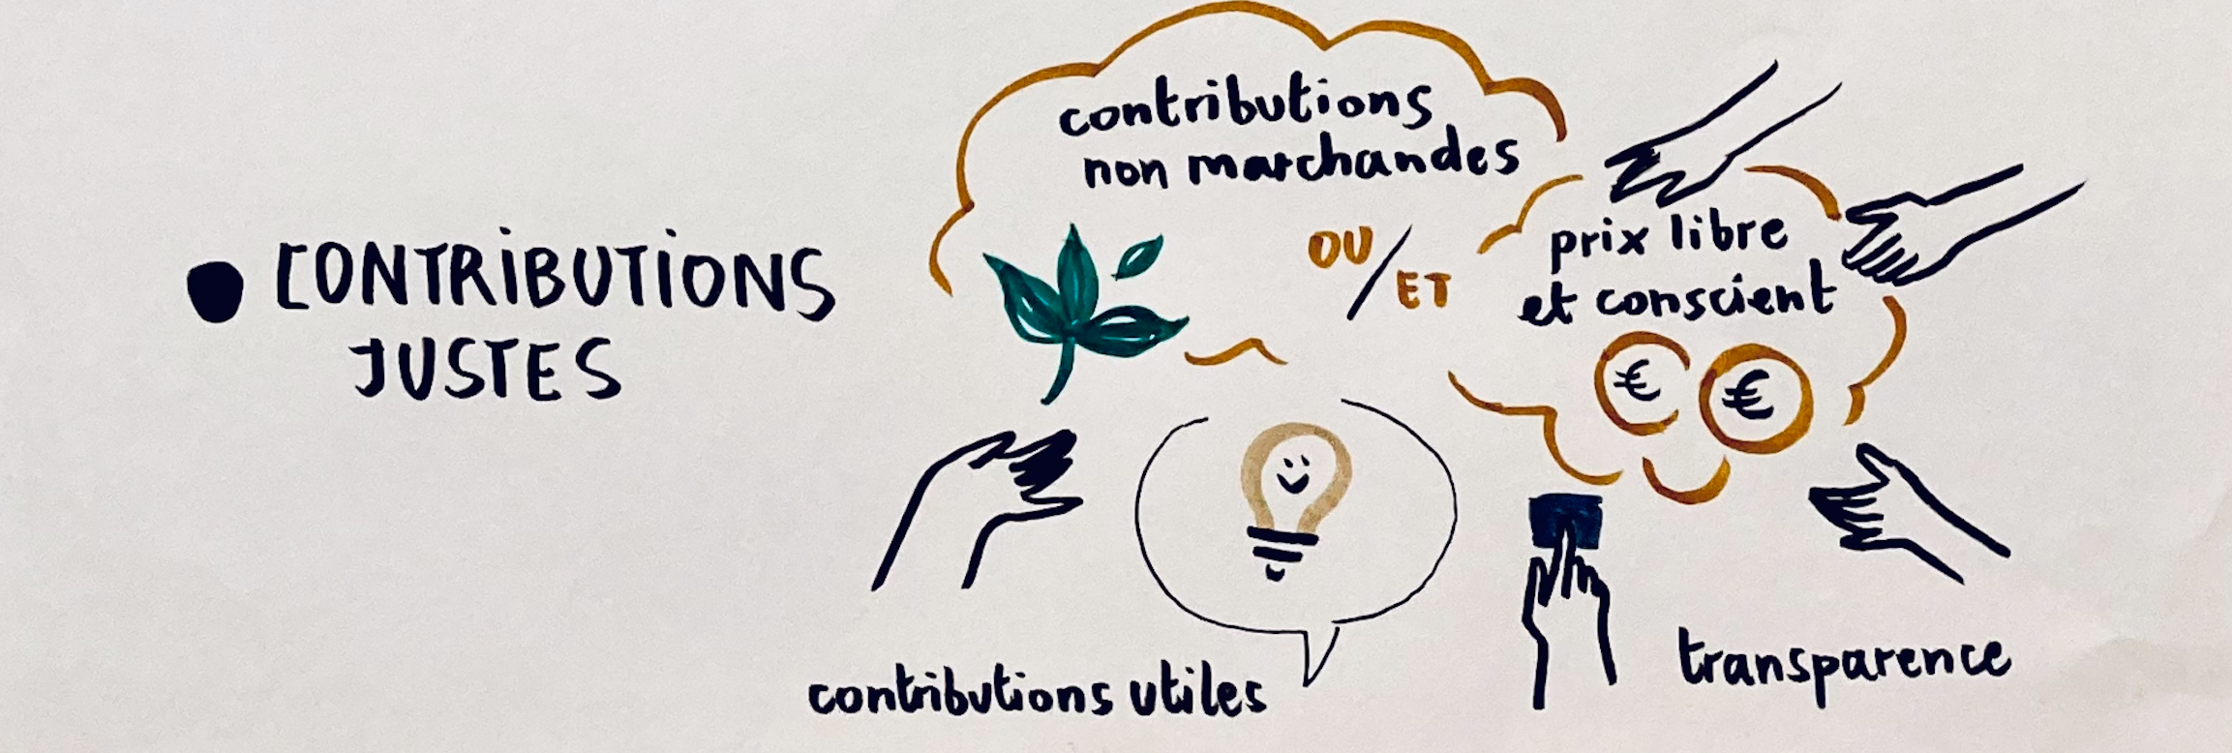 CONTRIBUTIONS
JUSTES
contributions
non marchandes
OU/ET
prix libre
et conscient
€ €
contributions utiles
transparence